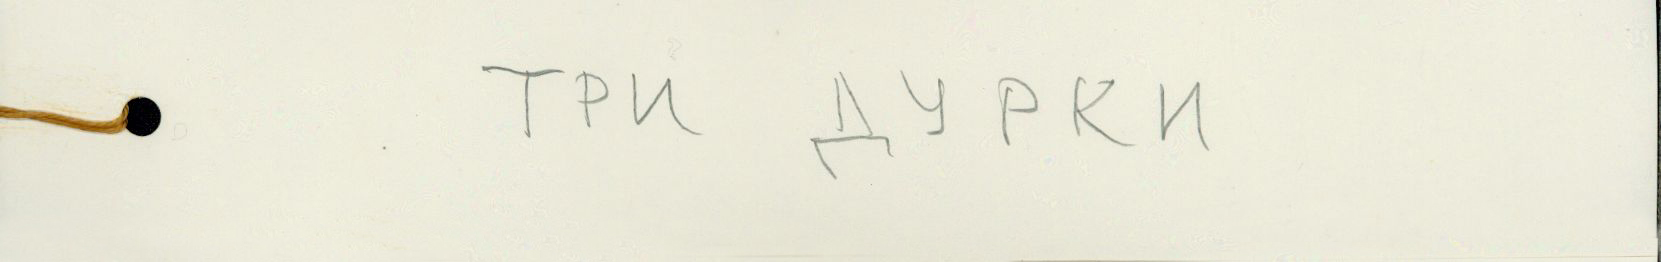 ТРИ ДУРКИ